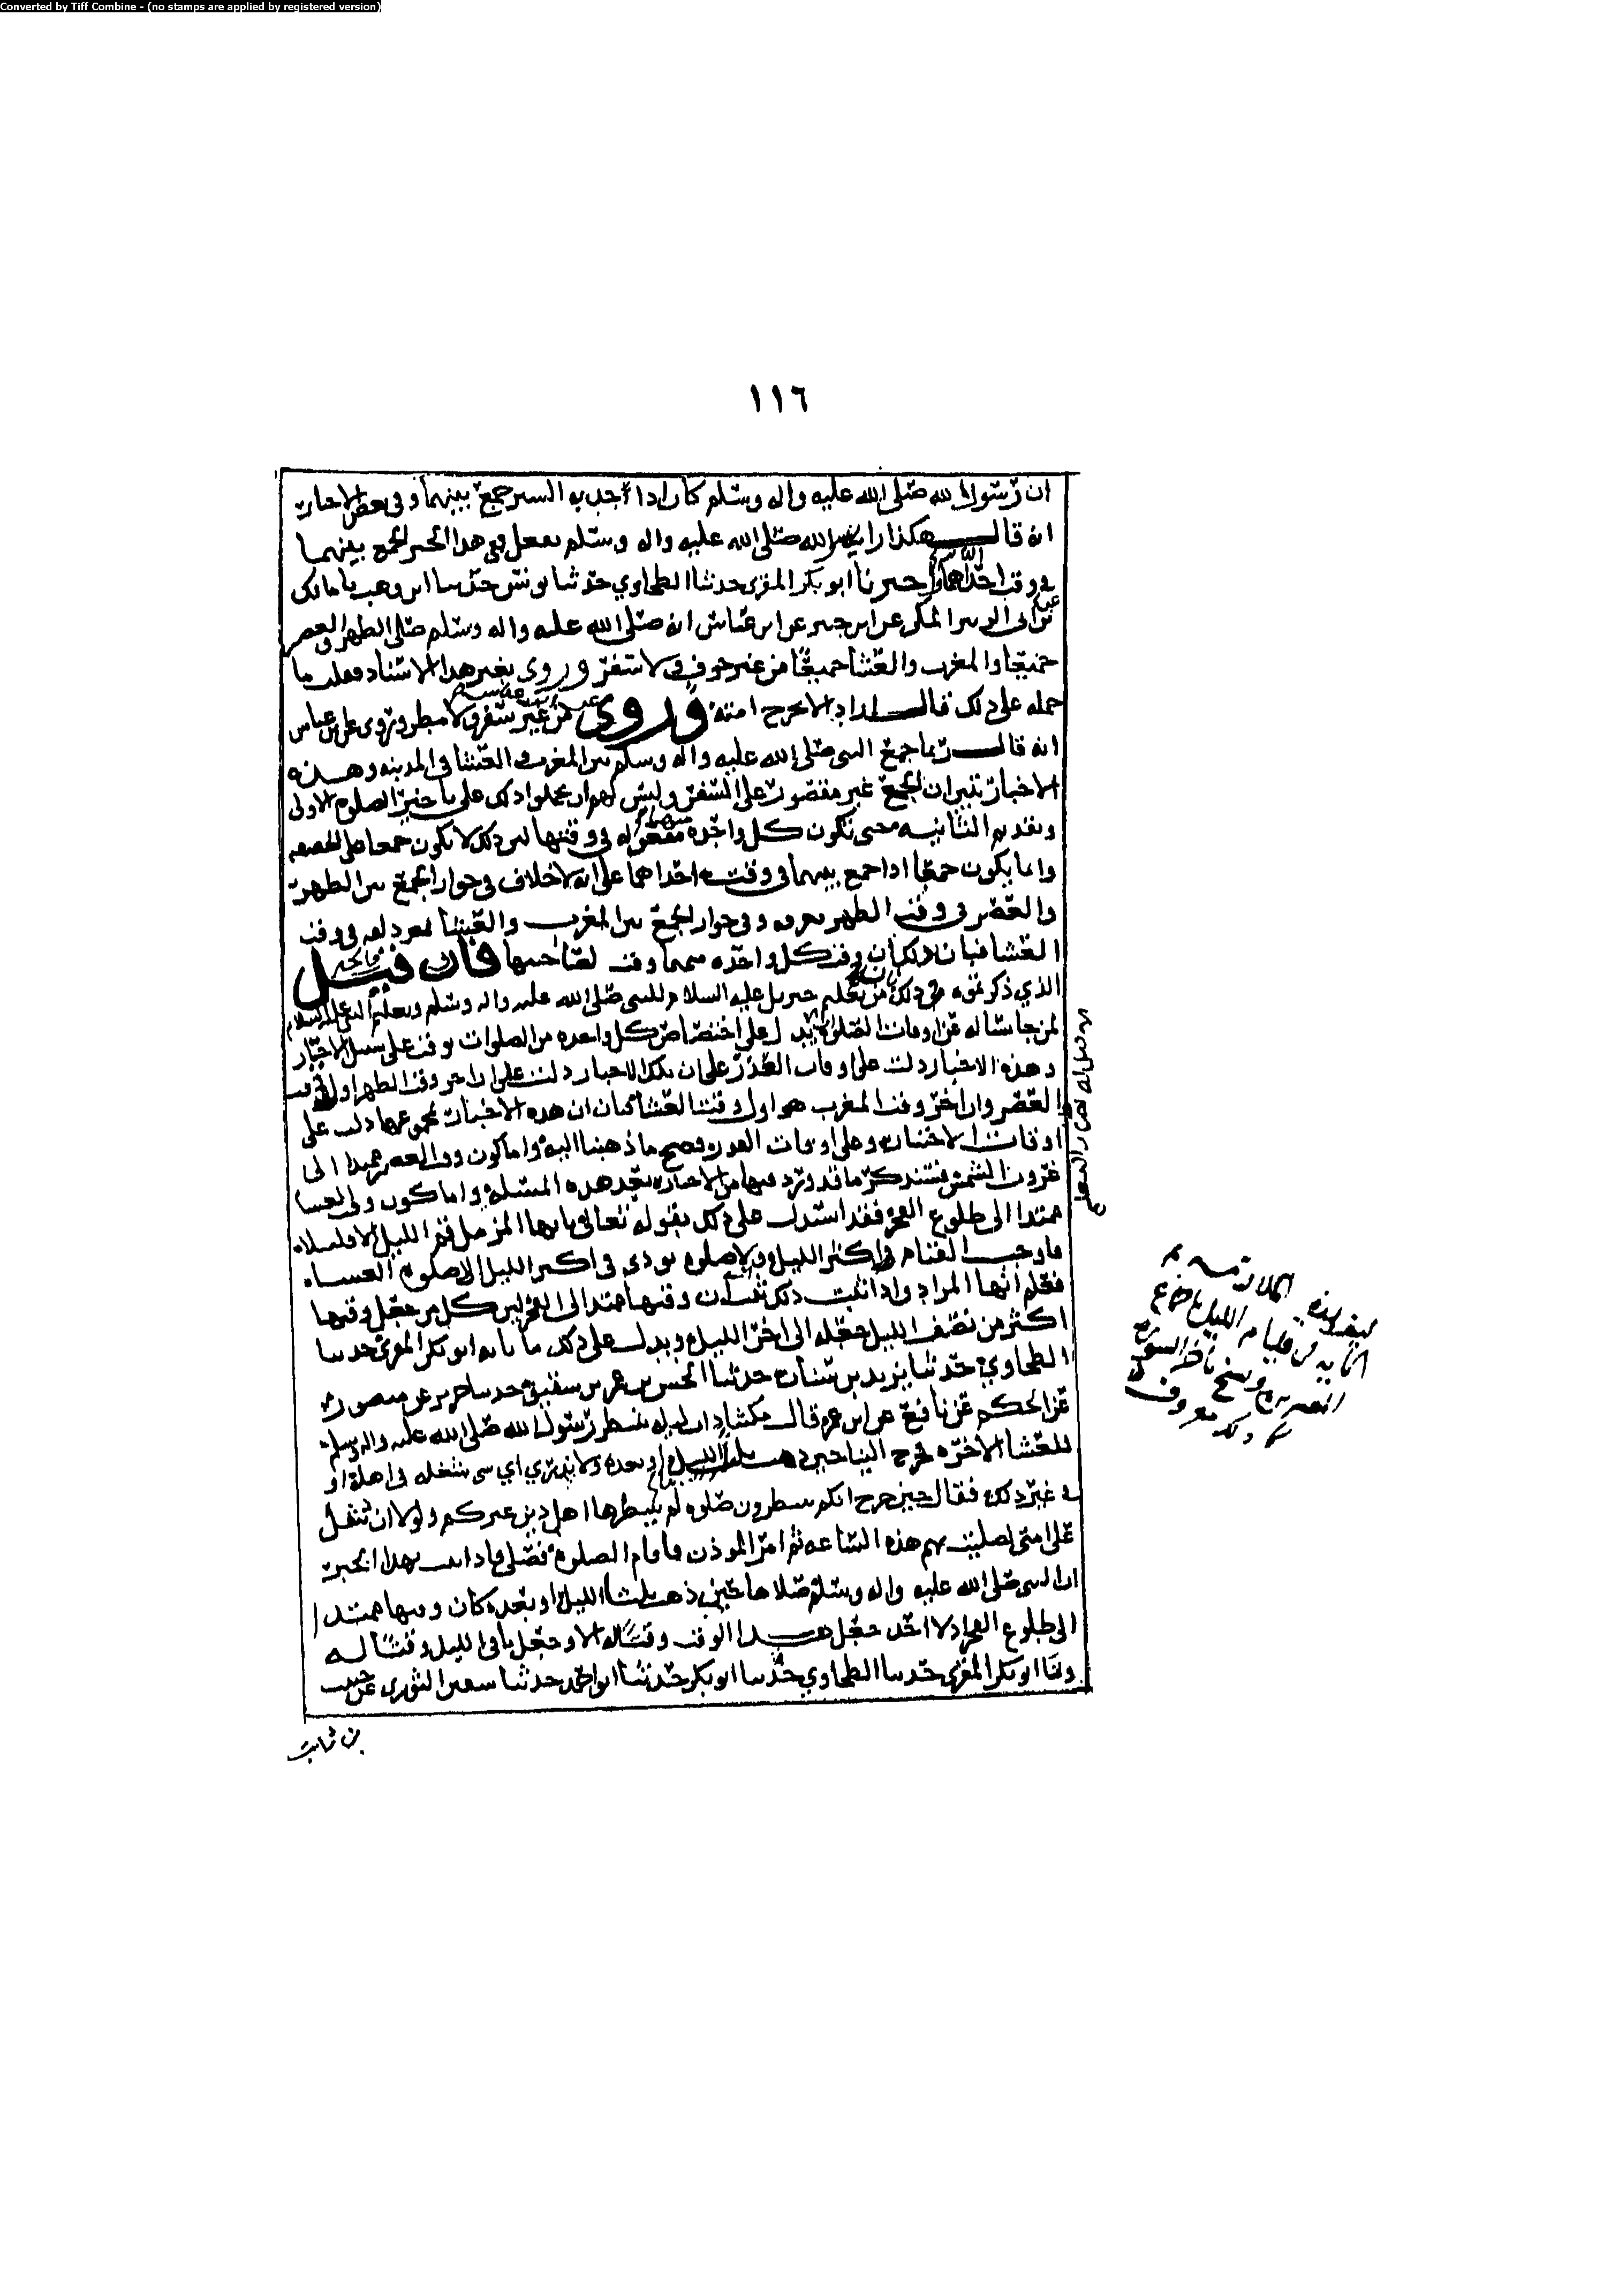 Converted by Tiff Combine - (no stamps are applied by registered version)
١١٦
ان رسول الله صلى الله عليه واله وسلم كان اذا جد به السير جمع بينهما وفي بعض الاخبار
انه قال هكذا رايت رسول الله صلى الله عليه واله وسلم يفعل ففي هذا الخبر الجمع بينهما
في وقت احداهما واخبرنا ابو بكر المقري حدثنا الطحاوي حدثنا يونس حدثنا ابن وهب مالك
عن ابي الزبير المكي عن ابن جبير عن ابن عباس انه صلى الله عليه واله وسلم صلى الظهر والعصر
جميعا والمغرب والعشا جميعا من غير خوف ولا سفر وروي بغير هذا الاسناد فقلت ما
حمله على ذلك قال اراد الا يحرج امته وروي من غير سفر ولا مطر وروي عن ابن عباس
انه قال ربما جمع النبي صلى الله عليه واله وسلم بين المغرب والعشا في المدينه وهذه
الاخبار تبين ان الجمع غير مقصور على السفر وليس لهم ان يحملوا ذلك على تاخير الصلوه الاولى
وتقديم الثانيه حتى تكون كل واحده منهما مفعوله في وقتها لان ذلك لا يكون جمعا على الحقيقه
وانما يكون جمعا اذا جمع بينهما في وقت احداهما على انه لا خلاف في جواز الجمع بين الظهر
والعصر في وقت الظهر بعرفه وفي جواز الجمع بين المغرب والعشا بمزدلفه في وقت
العشا فبان بذلك ان وقت كل واحده منهما وقت لصاحبتها فان قيل
الذي ذكرتموه من تعليم جبريل عليه السلام للنبي صلى الله عليه واله وسلم وتعليم النبي عليه السلام
لمن جا ساله عن اوقات الصلوه يدل على اختصاص كل واحده من الصلوات بوقت على سبيل الاختيار
وهذه الاخبار دلت على اوقات العذر على ان تلك الاخبار دلت على ان اخر وقت الظهر اول وقت
العصر وان اخر وقت المغرب هو اول وقت العشا فبان ان هذه الاخبار بمجموعها دلت على
اوقات الاختيار وعلى اوقات العذر وصح ما ذهبنا اليه واما كون وقت العصر ممتدا الى
غروب الشمس فسنذكر ما قد ورد فيها من الاخبار بعد هذه المسئلة واما كون وقت العشا
ممتدا الى طلوع الفجر فقد استدل على ذلك بقوله تعالى يا ايها المزمل قم الليل الا قليلا
فاوجب القيام في اكثر الليل ولا صلوه تودى في اكثر الليل الا صلوه العشاء
فعلم انها المراد واذا ثبت ذلك ثبت ان وقتها ممتد الى الفجر لان كل من جعل وقتها
اكثر من نصف الليل جعله الى اخر الليل ويدل على ذلك ما ابو بكر المقري حدثنا
الطحاوي حدثنا يزيد بن سنان حدثنا الحسن بن عمر بن سفيق حدثنا جرير عن منصور
عن الحكم عن نافع عن ابن عمر قال مكثنا ذات ليله ننتظر رسول الله صلى الله عليه واله وسلم
للعشا الاخره فخرج الينا حين ذهب ثلث الليل او بعده ولا ندري اي شي شغله في اهله او
في غير ذلك فقال حين خرج انكم تنتظرون صلوه لم ينتظرها اهل دين غيركم ولولا ان تثقل
على امتي لصليت بهم هذه الساعه ثم امر الموذن فاقام الصلوه فصلى فاذا ثبت بهذا الخبر
ان النبي صلى الله عليه واله وسلم صلاها حين ذهب ثلث الليل او بعده كان وقتها ممتدا
الى طلوع الفجر اذ لا احد جعل هذا الوقت وقتا له الا وجعل باقي الليل وقتا له
ابو بكر المقري حدثنا الطحاوي حدثنا ابو بكر حدثنا ابو احمد حدثنا سفين الثوري عن حبيب
بن ثابت
من قيام الليل
ونسخ باخر السوره
معروف